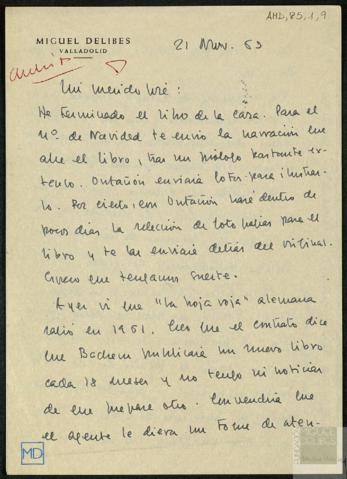 AMD, 85, 1, 9
MIGUEL DELIBES
VALLADOLID
21 Nov. 63
Mi querido José:
He terminado el libro de la caza. Para el
nº de Navidad te envío la narración que
abre el libro, tras un prólogo bastante ex-
tenso. Ontañón enviará fotos para ilustrar-
lo. Por cierto, con Ontañón haré dentro de
pocos días la selección de fotografías para el
libro y te las enviaré detrás del original.
Espero que tengamos suerte.
Ayer vi que "La hoja roja" alemana
salió en 1961. Creo que el contrato dice
que Bachem publicará un nuevo libro
cada 18 meses y no tengo ni noticias
de que prepare otro. Convendría que
el agente le diera un toque de aten-
MD